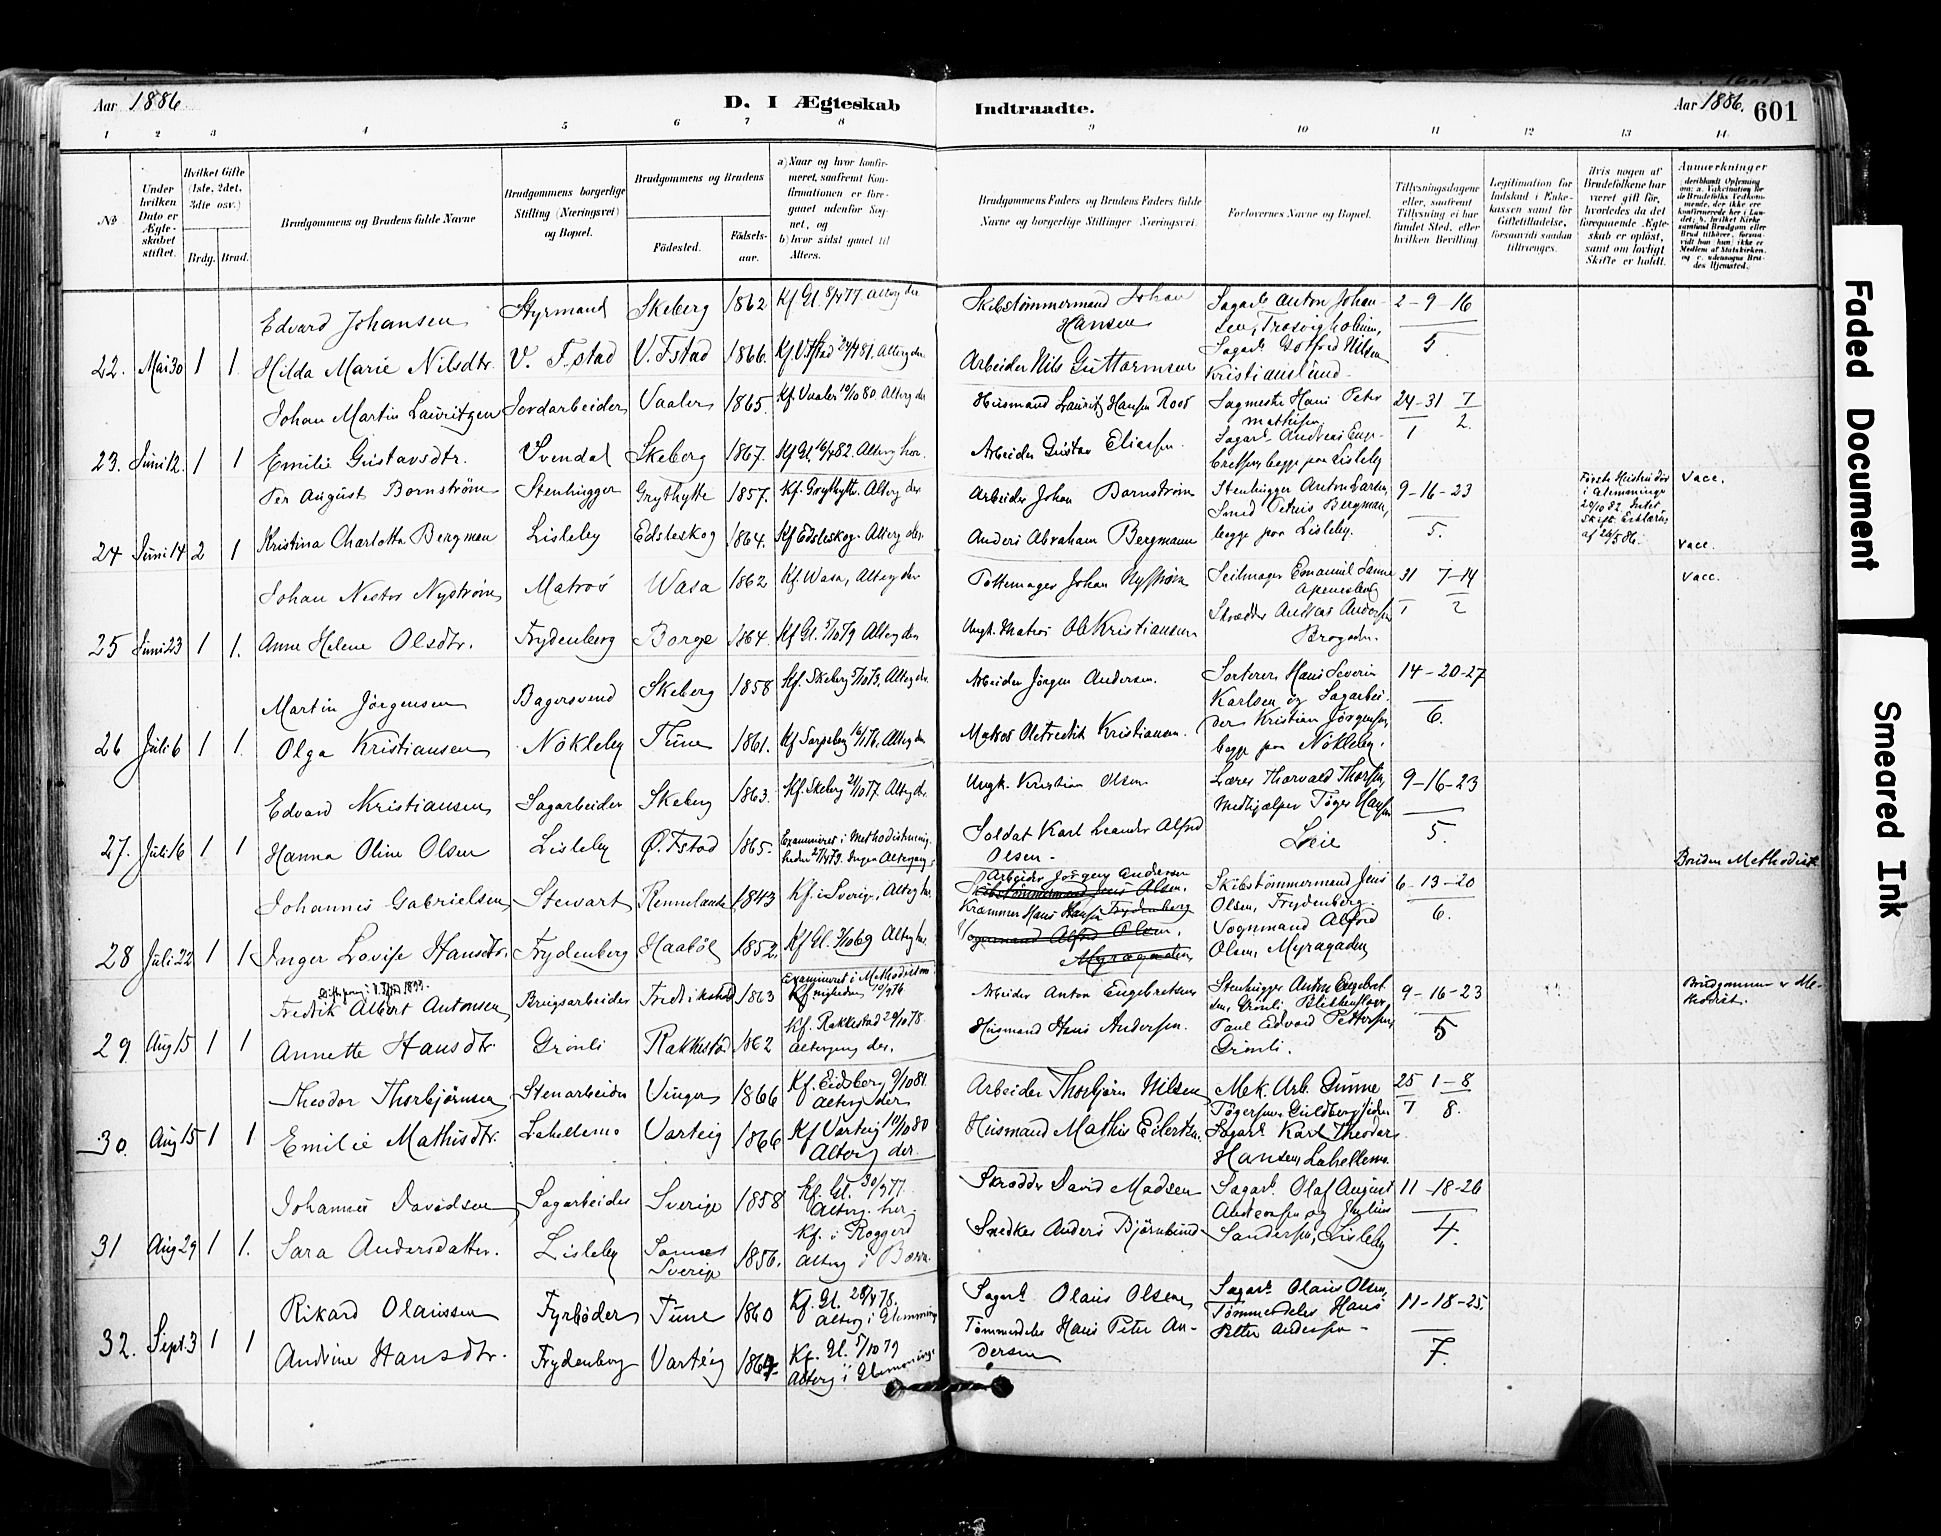 Aar 1886.
D. I Ægteskab Indtraadte.
Aar 1886. 601
1 2 3 4 5 6 7 8 9 10 11 12 13 14
No
Under hvilken Dato er Ægteskabet stiftet.
Hvilket Gifte (1ste, 2det, 3dte osv.)
Brdg. Brud.
Brudgommens og Brudens fulde Navne
Brudgommens borgerlige Stilling (Næringsvei) og Bopæl.
Brudgommens og Brudens
Fødested. Fødselsaar.
a) Naar og hvor konfirmeret, saafremt Konfirmationen er foregaaet udenfor Sognet, og
b) hvor sidst gaaet til Alters.
Brudgommens Faders og Brudens Faders fulde Navne og borgerlige Stillinger Næringsvei.
Forlovernes Navne og Bopæl.
Tillysningsdagene eller, saafremt Tillysning ei har fundet Sted, efter hvilken Bevilling
Legitimation for Indskud i Enkekassen samt for Giftetilladelse, forsaavidt saadan tiltrænges.
Hvis nogen af Brudefolkene har været gift før, hvorledes da det foregaaende Ægteskab er opløst, samt om lovligt Skifte er holdt.
Anmærkninger
Edvard Johansen Styrmand Skeberg 1862 Kf. Gl. 8/4 77 Alterg der Skibstømmermand Johan Hansen Sagarb. Anton Johansen, Trosvigholmen, 2-9-16
22. Mai 30 1 1. Hilda Marie Nilsdtr. V. Fstad V. Fstad 1866. Alterg der Arbeider Nils Guttormsen Sagarb. Gotfred Nilsen Kristianslund. 5.
Johan Martin Lauritzen Jordarbeider Vaaler 1865. Kf. Vaaler 10/10 80 Alterg der Husmand Laurits Hansen Roos Sagmester Hans Peter Mathisen 24-31 7
23. Juni 12. 1 1 Emilie Gustavsdtr. Svendal Skeberg 1867. Alterg her. Arbeider Gustav Eliasen. Sagarb. Andreas Engebretsen begge paa Lisleby 1 2.
Per August Bornström Stenhugger Grythytte 1857. Kf. Grythytte. Alterg der Arbeider Johan Bornström Stenhugger Anton Larsen, 9-16-23 Vacc.
24 Juni 14 2 1 Kristina Charlotta Bergman Lisleby Edsleskog 1864. Kf Edsleskog. Alterg der. Anders Abraham Bergmann Smed Petrus Bergman, begge paa Lisleby. 5. Vacc.
Johan Nestor Nyström Matros Wasa 1862 Kf. Wasa, Alterg der Pottemager Johan Nyström Seilmager Emanuel 31 7-14 Vacc.
25 Juni 23 1 1. Anne Helene Olsdtr. Frydenberg Borge 1864. Kf Gl. 5/10 79 Alterg der Ungk. Matros Ole Kristiansen Skrædder Andreas Andersen Brogaden. 1 2
Martin Jörgensen Bagersvend Skeberg 1858 Kf. Skeberg 5/10 73. Alterg der. Arbeider Jörgen Andersen. Sorterer Hans Severin Karlsen og Sagarbeider Kristian Jörgensen, 14-20-27
26 Juli 6 1 1. Olga Kristiansen Nökleby Tune 1861. Alterg der Matros Ole Fredrik Kristiansen. begge paa Nökleby. 6.
Edvard Kristiansen Sagarbeider Skeberg 1863. Kf. Skeberg 21/10 77. Alterg der. Ungk. Kristian Olsen Lærer Thorvald Thorsen, 9-16-23
27. Juli 16 1 1 Hanna Oline Olsen Lisleby Ø. Fstad 1865. Examineret i Methodistmenigheden Ingen Altergang. Soldat Karl Leander Alfred Olsen. Medhjælper Töger Hansen Leie 5. Bruden Methodist
Johannes Gabrielsen Stewart Rennelanda 1843 Kf. i Sverige, Alterg her Arbeider Jörgen Andersen Skibstömmermand Jens Olsen, Frydenberg Skibstömmermand Jens Olsen, Frydenberg. 6-13-20
28 Juli 22 1 1 Inger Lovise Hansdtr. Frydenberg Haabøl 1852. Kf Gl. 3/10 69 Alterg her. Kræmmer Hans Hansen Vognmand Alfred Olsen, Myragaden Vognmand Alfred Olsen, Myragaden 6.
Fredrik Albert Antonsen Brugsarbeider Fredrikstad 1863 Examineret i Methodistmenigheden Arbeider Anton Engebretsen Stenhugger Anton Engebretsen, Grönli 9-16-23 Brudgommen er Methodist.
29 Aug 15 1 1 Annette Hansdtr. Grönli Rakkestad 1862 Kf. Rakkestad 20/10 78. Altergang der. Husmand Hans Andersen. Paul Edvard Pettersen, Grönli. 5
Theodor Thorbjörnsen Stenarbeider Vinger 1866 Kf. Eidsberg 9/10 81. Alterg der Arbeider Thorbjörn Nilsen Mek. Arb. Gunne Tögersen, 25 1-8
30. Aug 15 1 1 Emilie Mathisdtr. Lahellemo Varteig 1866 Kf Varteig 10/10 80 Alterg der. Husmand Mathis Eilertsen. Sagarb. Karl Theodor Hansen, Lahellemo. 7 8.
Johannes Davidsen Sagarbeider Sverige 1858 Kf. Gl. 30/9 77. Alterg. her. Skrædder David Madsen Sagarb. Olaf August Andersen og Julius 11-18-26
31 Aug 29 1 1. Sara Andersdatter. Lisleby Sverige 1856. Kf. i Roggerd Alterg i Snedker Anders Björnlund Sandersen, Lisleby 4.
Rikard Olaussen Fyrböder Tune 1860 Kf. Gl. 28/4 78. Alterg i Glemminge Sagarb. Olaus Olsen Sagarb. Olaus Olsen, 11-18-25.
32. Sept. 3 1 1 Andrine Hansdtr. Frydenberg Varteig 1864. Kf. Gl. 5/10 79 Alterg i Glemminge Tömmerdeler Hans Peter Andersen Tömmerdeler Hans Petter Andersen 7.
Faded Document
Smeared Ink